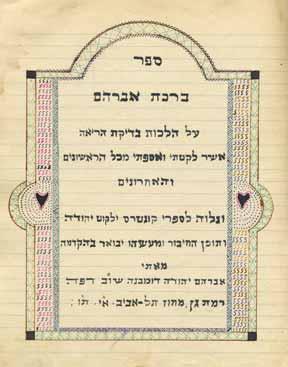 ספר
ברכת אברהם
על הלכות בדיקת הריאה
אשר לקטתי ואספתי מכל הראשונים
והאחרונים
ונלוה לספרי קונטרס ילקוט יהודיה
ותוכן החיבור ומעשהו יבואר בהקדמה
מאתי
אברהם יהודה שו"ב
רמת גן, מחוז תל-אביב